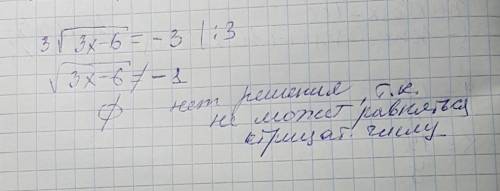 3√3x-6 = -3 | :3
√3x-6 ≠ -1
∅ нет решения, т.к.
не может равняться
отрицат. числу